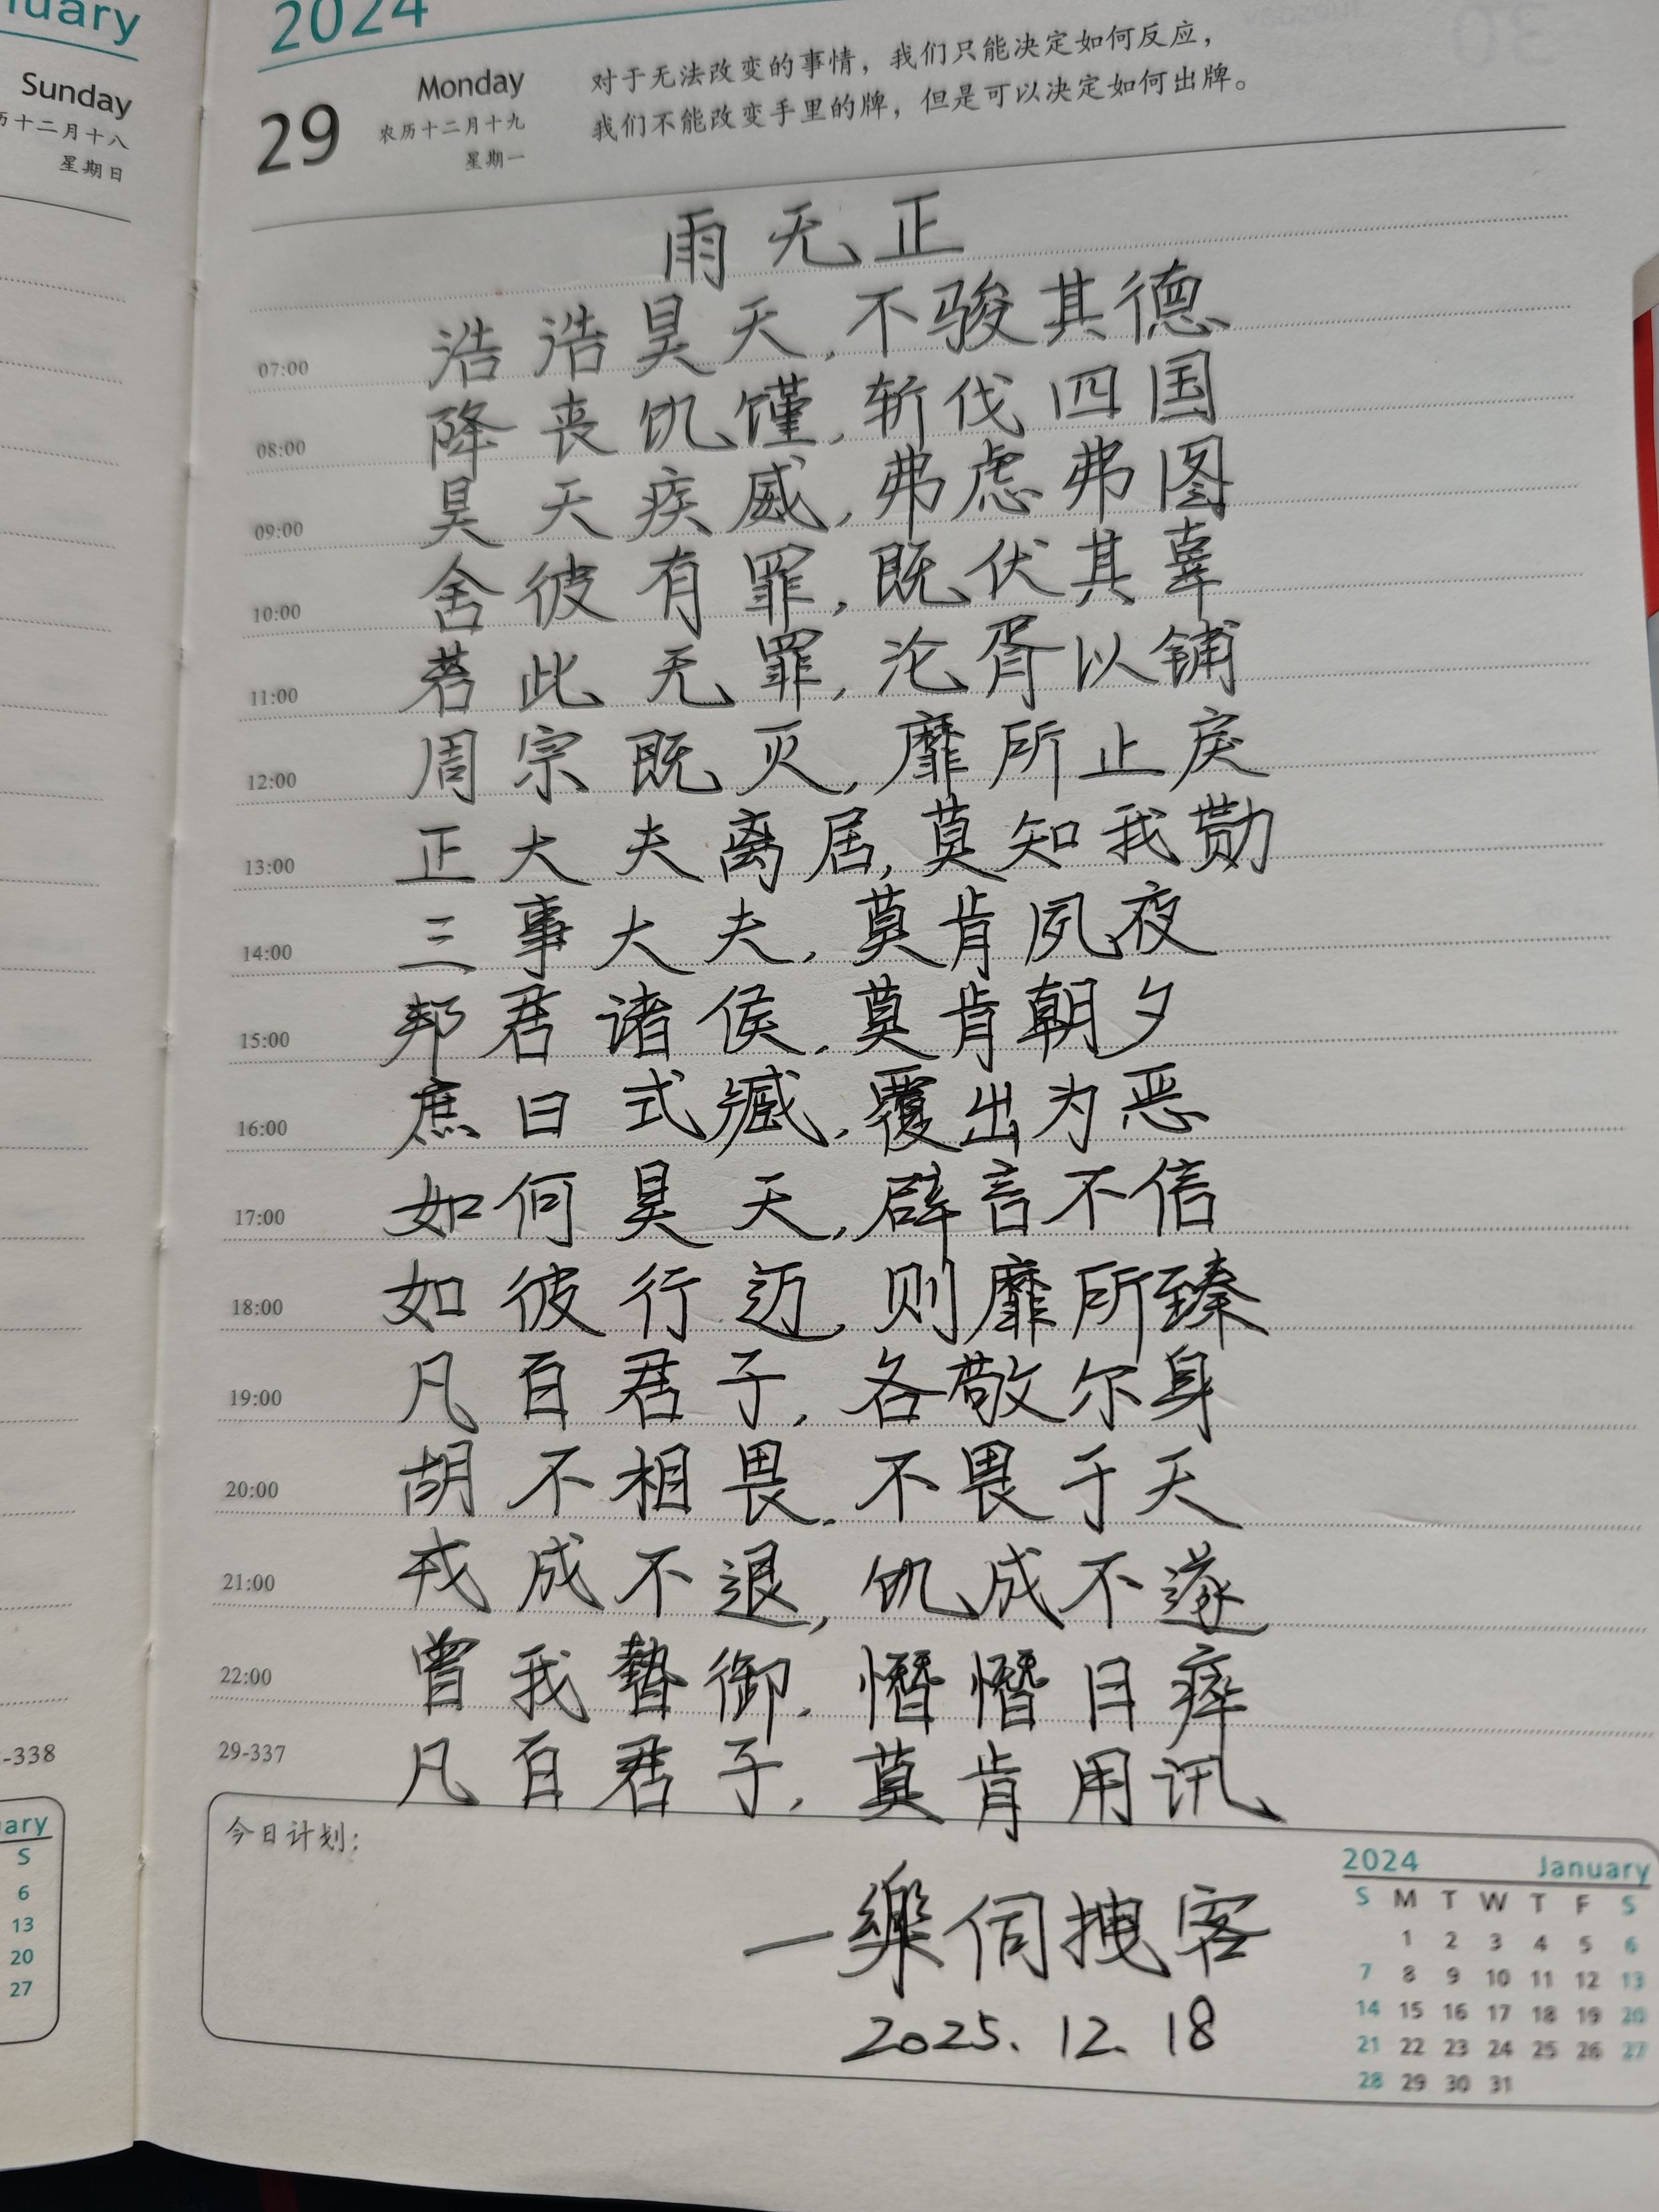 nuary
Sunday
历十二月十八
星期日
-338
uary
S
6
13
20
27
2024
29
Monday
农历十二月十九
星期一
对于无法改变的事情，我们只能决定如何反应，
我们不能改变手里的牌，但是可以决定如何出牌。
雨无正
07:00 浩浩昊天，不骏其德
08:00 降丧饥馑，斩伐四国
09:00 昊天疾威，弗虑弗图
10:00 舍彼有罪，既伏其辜
11:00 若此无罪，沦胥以铺
12:00 周宗既灭，靡所止戾
13:00 正大夫离居，莫知我勚
14:00 三事大夫，莫肯夙夜
15:00 邦君诸侯，莫肯朝夕
16:00 庶曰式臧，覆出为恶
17:00 如何昊天，辟言不信
18:00 如彼行迈，则靡所臻
19:00 凡百君子，各敬尔身
20:00 胡不相畏，不畏于天
21:00 戎成不退，饥成不遂
22:00 曾我暬御，憯憯日瘁
29-337 凡百君子，莫肯用讯
今日计划：
一樂伺拽客
2025.12.18
2024 January
S M T W T F S
1 2 3 4 5 6
7 8 9 10 11 12 13
14 15 16 17 18 19 20
21 22 23 24 25 26 27
28 29 30 31